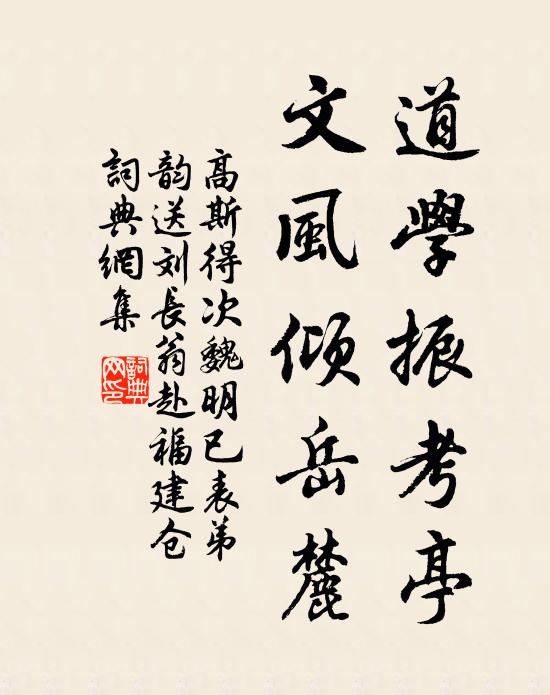 道學振考亭
文風傾岳麓
高斯得次魏明巳表弟
韵送刘長翁赴福建仓
詞典網集
詞典網印